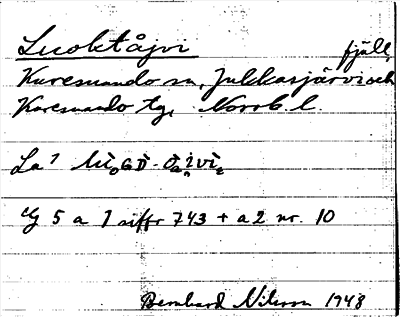 Luoktåjvi fjäll,
Karesuando sn, Jukkasjärvi och
Karesuando tg, Norrb. l.
La
5 a 1 siffr 743 + a 2 nr. 10
Bernhard Nilsson 1948